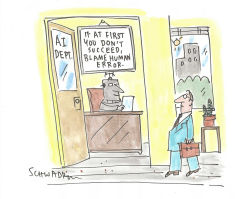 A.I.
DEPT.
IF AT FIRST
YOU DON'T
SUCCEED,
BLAME HUMAN
ERROR.
SCHWADRON